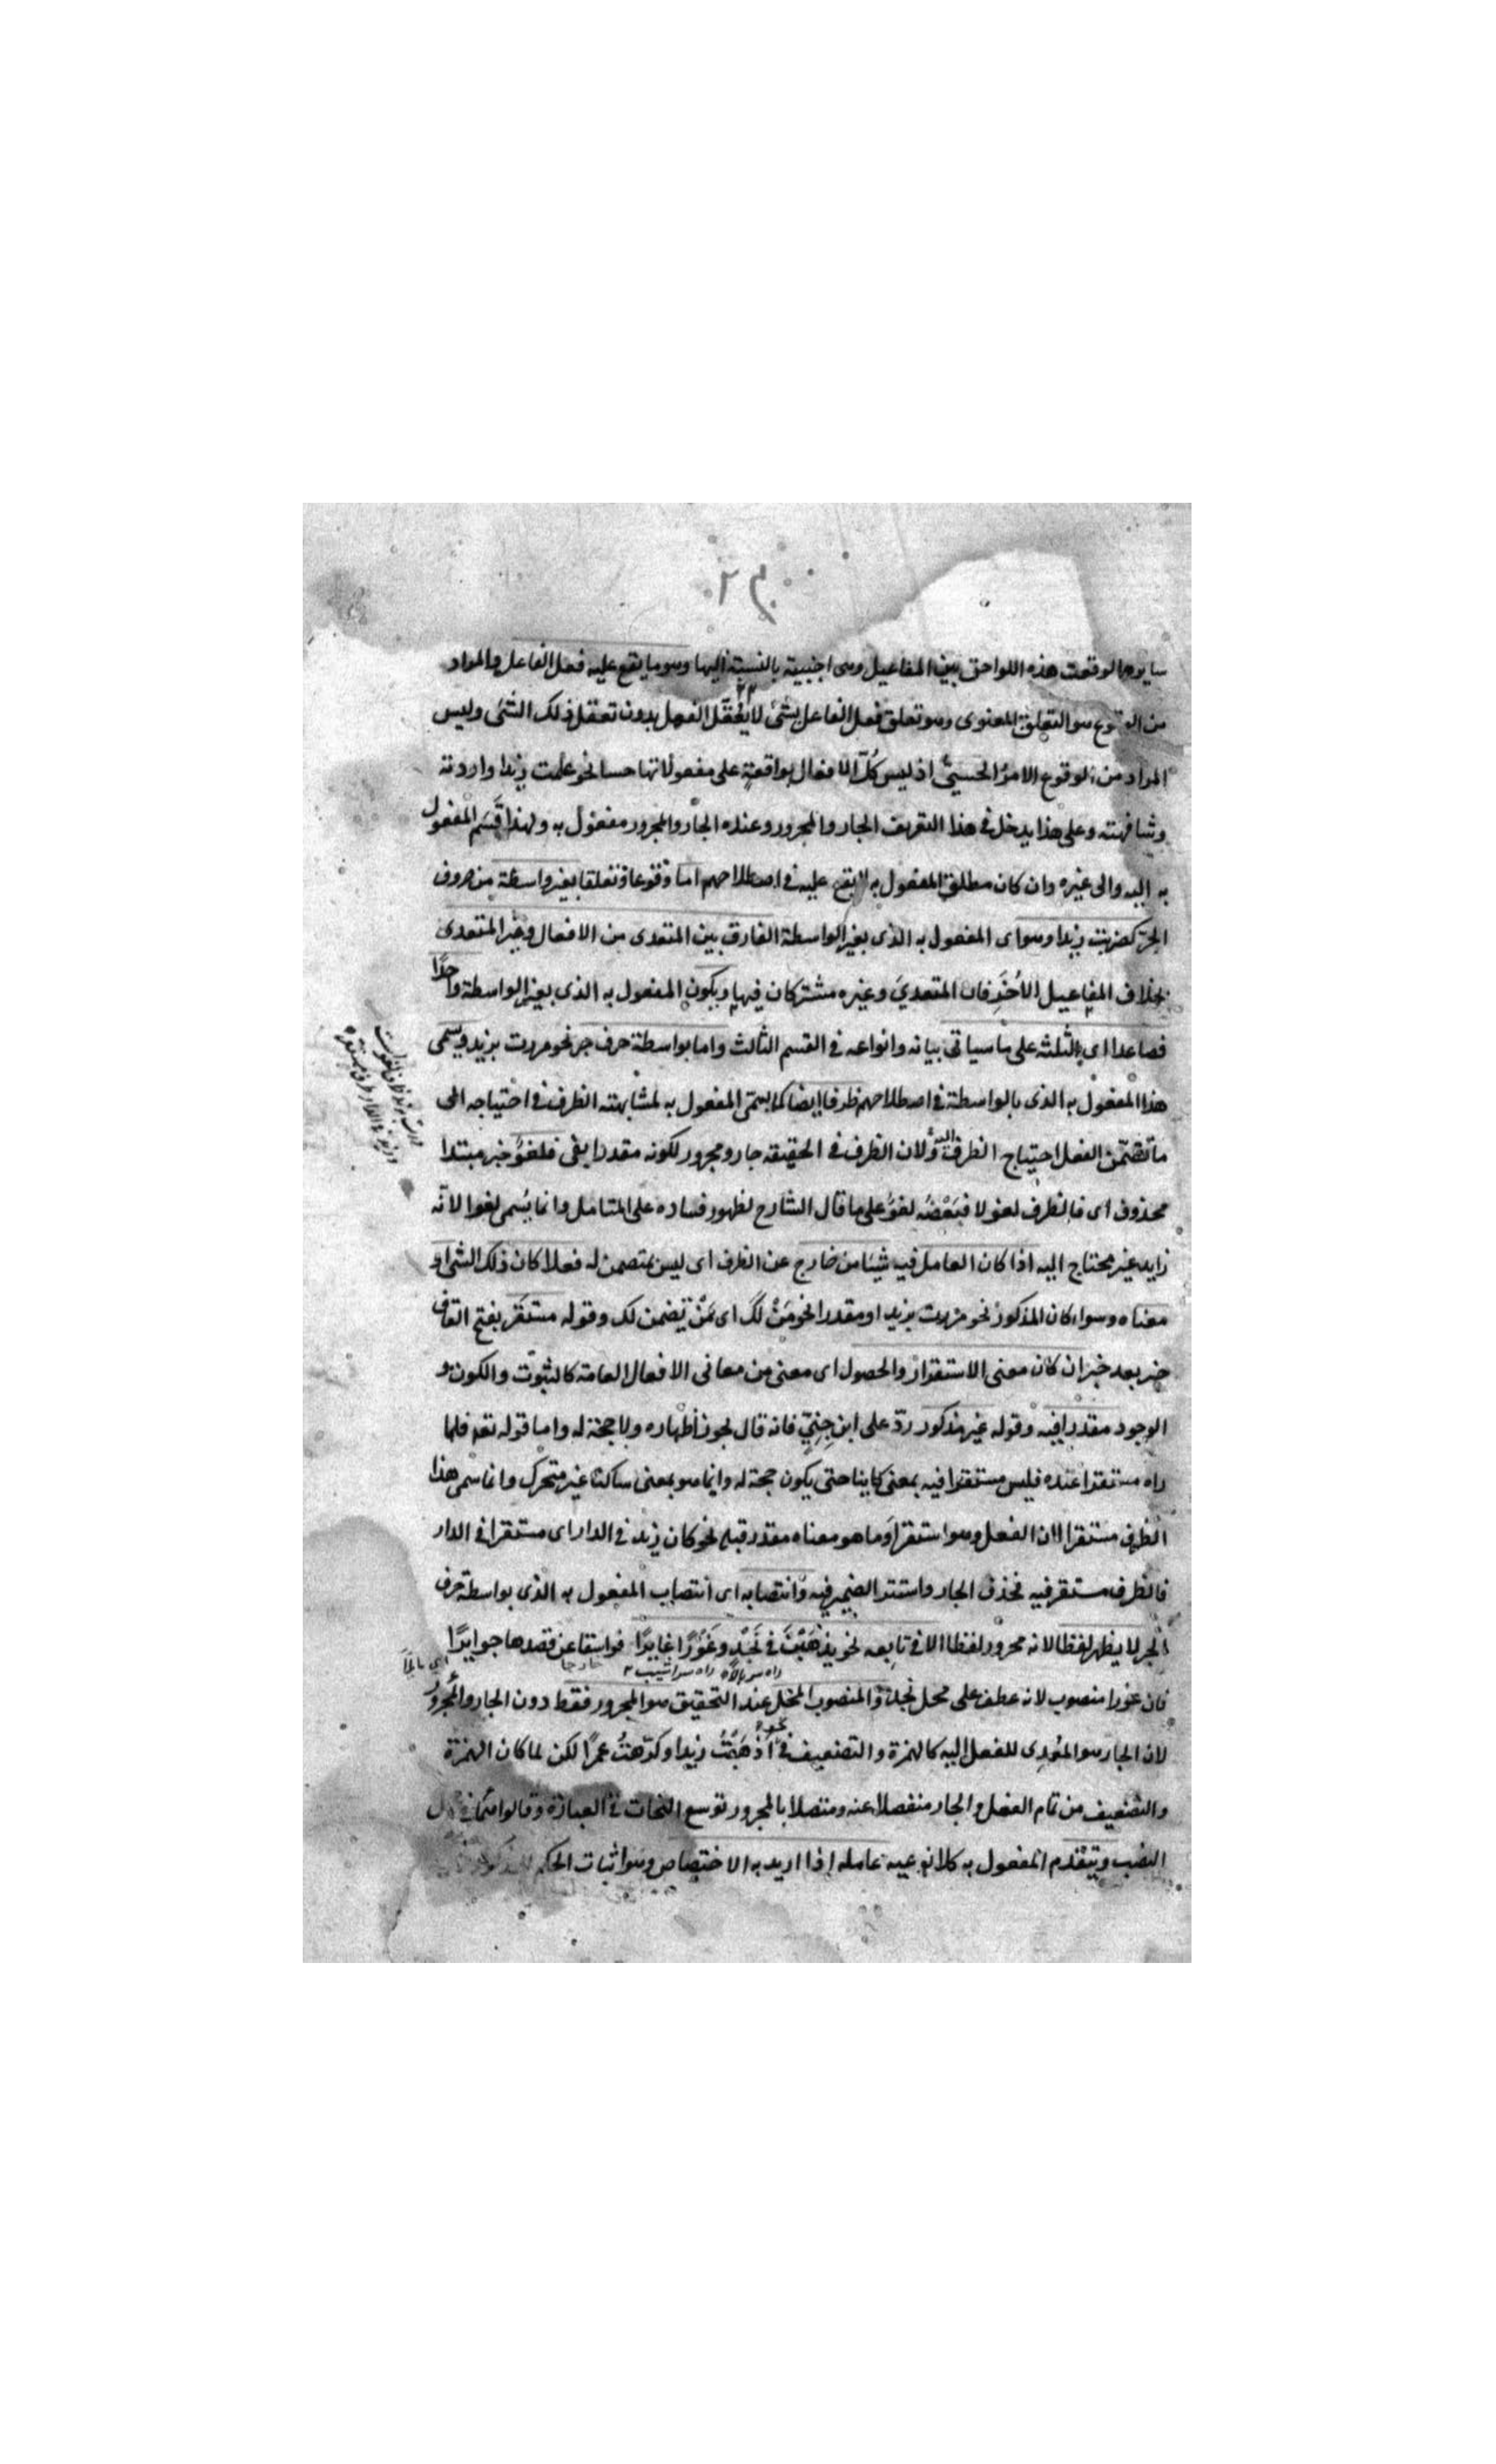 سايرها لوقعت هذه اللواحق بين المفاعيل وهى اجنبية بالنسبة اليها وهو ما يقع عليه فعل الفاعل والمراد
من الوقوع هو التعلق المعنوى وهو تعلق فعل الفاعل بشئ لا يُعْقَل الفعل بدون تعقل ذلك الشئ وليس
المراد من الوقوع الامرُ الحسىُّ اذ ليس كُلّ الافعال بواقعةٍ على مفعولاتها حسا نحو علمت زيدا واردته
وشافهته وعلى هذا يدخل فى هذا التعريف الجار والمجرور وعنده الجار والمجرور مفعول به ولهذا قَسَم المفعول
به اليه والى غيره وان كان مطلق المفعول به لا يقع عليه فى اصطلاحهم اما وقوعا وتعلقا بغير واسطة من حروف
الجرّ كضربت زيدا وهو اى المفعول به الذى بغير الواسطة الفارق بين المتعدى من الافعال وغير المتعدى
بخلاف المفاعيل الأُخَر فان المتعدىَ وغيره مشتركان فيها ويكون المفعول به الذى بغير الواسطة واحدًا
فصاعدا اى الثلثة على ما سياتى بيانه وانواعه فى القسم الثالث واما بواسطة حرف جر نحو مررت بزيد ويسمى
هذا المفعول به الذى بالواسطة فى اصطلاحهم ظرفا ايضا كما يسمى المفعول به لمشابهته الظرف فى احتياجه الى
ما تضمّن الفعل احتياج الظرف اليه ولان الظرف فى الحقيقة جار ومجرور لكونه مقدرا بفى فلغوٌ خبر مبتدا
محذوف اى فالظرف لغو لا فبَعْضُه لغوٌ على ما قال الشارح لظهور فساده على المتامل وانما يُسمى لغوا لانّه
زايد غير محتاج اليه اذا كان العامل فيه شيئا من خارج عن الظرف اى ليس بمتضمن له فعلا كان ذلك الشئ او
معناه وسواء كان المذكور نحو مررت بزيد او مقدرا نحو مَنْ لَكَ اى مَنْ يَضمن لك وقوله مستقَر بفتح القاف
خبر بعد خبر ان كان معنى الاستقرار والحصول اى معنى من معانى الافعال العامة كالثبوت والكون و
الوجود مقدرا فيه وقوله غير مذكور ردّ على ابن جِنِّى فانه قال يجوز اظهاره ولا حجة له واما قوله تعم فلما
راه مستقرا عنده فليس مستقرا فيه بمعنى كاينا حتى يكون حجة له وانما هو بمعنى ساكنا غير متحرك وانما سمى هذا
الظرف مستقرا لان الفعل وهو استقر اَو ما هو معناه مقدر قبله نحو كان زيد فى الدار اى مستقرا فى الدار
فالظرف مستقر فيه فحذف الجار واستتر الضمير فيه وانتصابه اى انتصاب المفعول به الذى بواسطة حرف
الجر لا يظهر لفظا لانه مجرور لفظا الا فى تابعه نحو يذهَبْنَ فى نَجْدٍ وغَوْرًا غايرًا فواسقا عن قصدها جوايرًا
راه سر بالا راه سر شيب خارجا
فان غورا منصوب لانه عطف على محل نجد والمنصوب المحل عند التحقيق هو المجرور فقط دون الجار والمجرور
لان الجار هو المعدِى للفعل اليه كالهمزة والتضعيف فى نحو اَذْهَبْتُ زيدا وكرّهتُ عمرًا لكن لما كان الهمزة
والتضعيف من تمام الفعل والجار منفصلا عنه ومتصلا بالمجرور توسع النحات فى العبارة وقالوا
النصب ويتقدم المفعول به كلا نوعيه عامله اذا اريد به الاختصاص وهو اثبات الحكم